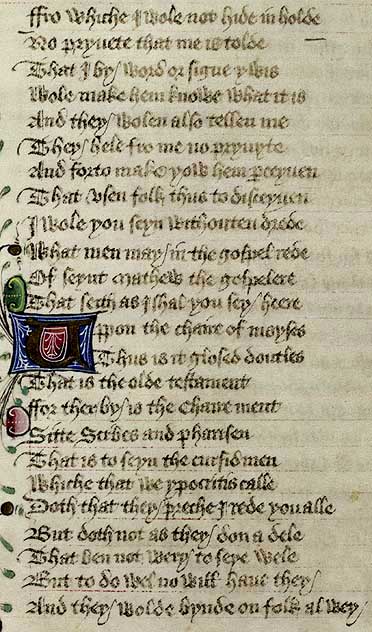 ffro whiche I wole not hide in holde
No pryuete that me is tolde
That I by word or signe ywis
Wole make hem knowe what it is
And they wolen also tellen me
They hele fro me no pryuyte
And forto make yow hem perceyuen
That vsen folk thus to disceyuen
I wole you seyn withouten drede
What men may in the gospel rede
Of seynt Mathew the gospelere
That seith as I shal you sey heere
Vpon the chaire of moyses
Thus is it glosed doutles
That is the olde testament
ffor ther by is the chaire ment
Sitte Scribes and pharisen
That is to seyn the cursid men
Whiche that we ypocritis calle
Doth that they preche I rede you alle
But doth not as they don a dele
That ben not wery to seye wele
But to do wel no will haue they
And they wolde bynde on folk al wey